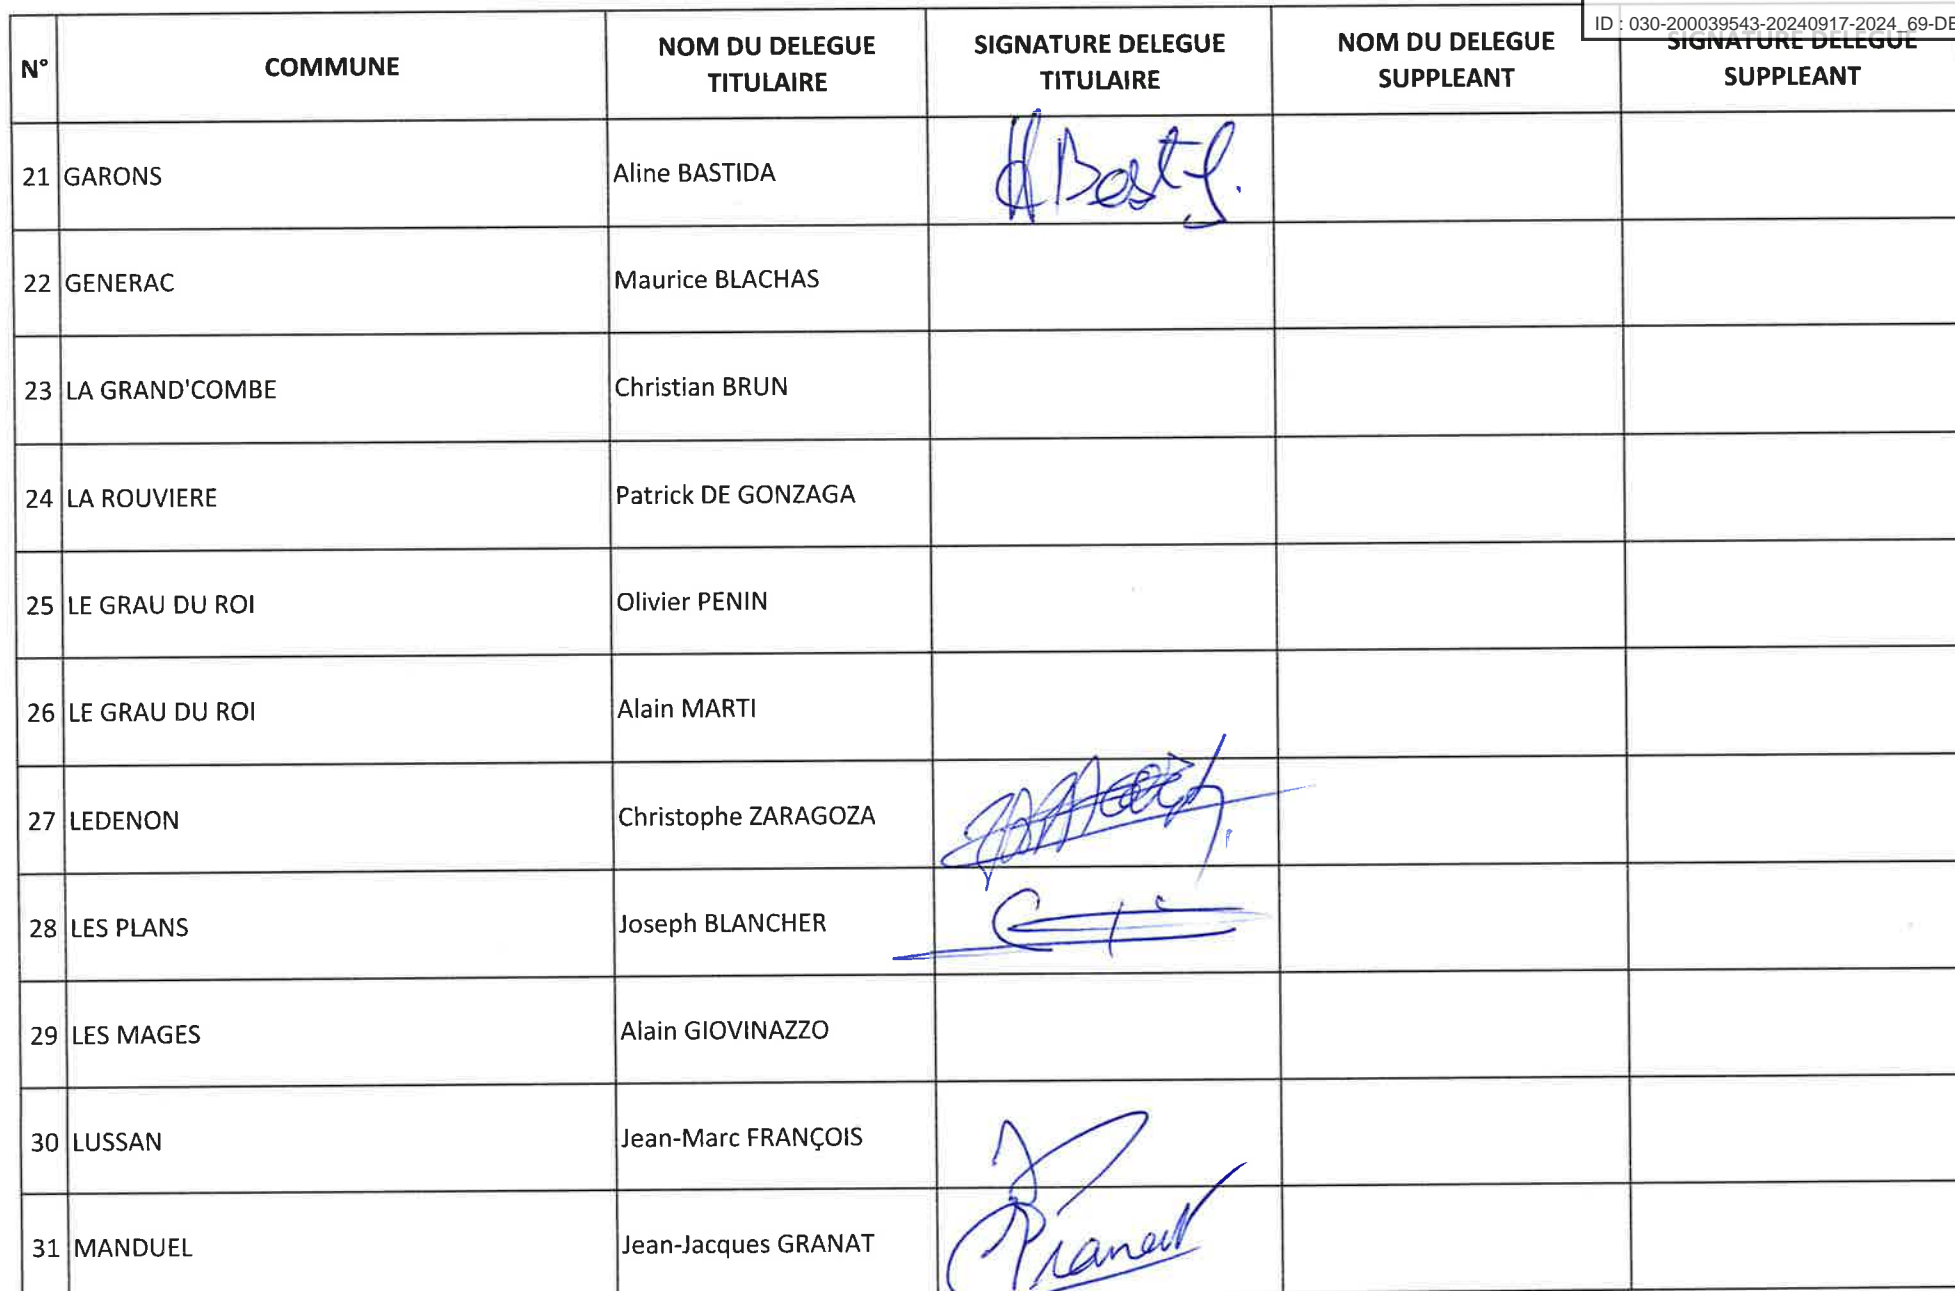 ID : 030-200039543-20240917-2024_69-DE
N° COMMUNE NOM DU DELEGUE TITULAIRE SIGNATURE DELEGUE TITULAIRE NOM DU DELEGUE SUPPLEANT SIGNATURE DELEGUE SUPPLEANT
21 GARONS Aline BASTIDA
22 GENERAC Maurice BLACHAS
23 LA GRAND'COMBE Christian BRUN
24 LA ROUVIERE Patrick DE GONZAGA
25 LE GRAU DU ROI Olivier PENIN
26 LE GRAU DU ROI Alain MARTI
27 LEDENON Christophe ZARAGOZA
28 LES PLANS Joseph BLANCHER
29 LES MAGES Alain GIOVINAZZO
30 LUSSAN Jean-Marc FRANÇOIS
31 MANDUEL Jean-Jacques GRANAT